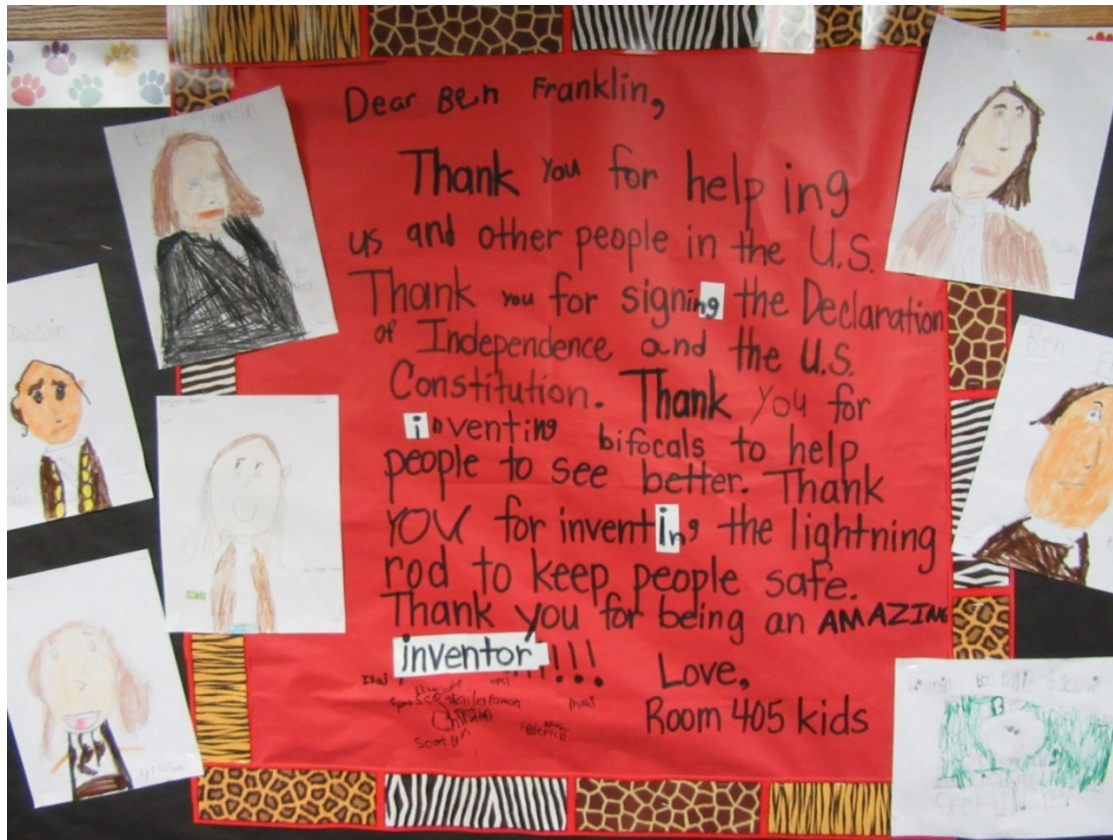 Dear Ben Franklin,
Thank you for help ing
us and other people in the U.S.
Thank you for signing the Declaration
of Independence and the U.S.
Constitution. Thank you for
inventing bifocals to help
people to see better. Thank
you for inventing the lightning
rod to keep people safe.
Thank you for being an AMAZING
inventor!!!
Love,
Room 405 kids
Christian
Ben Franklin
Ben